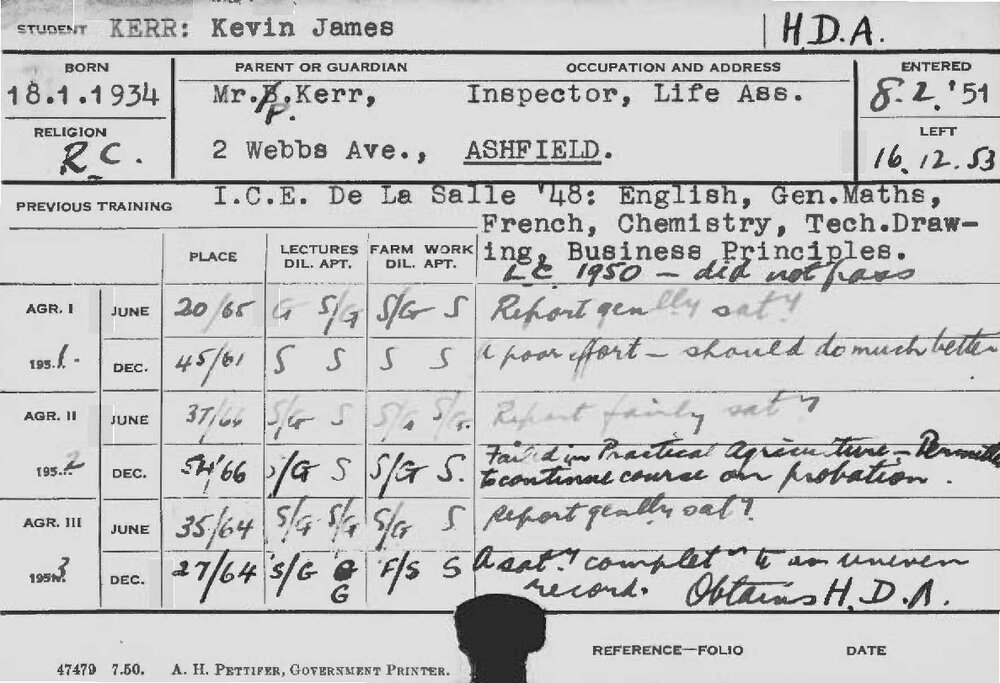 STUDENT KERR: Kevin James H.D.A.
BORN PARENT OR GUARDIAN OCCUPATION AND ADDRESS ENTERED
18.1.1934 Mr. P. Kerr, Inspector, Life Ass. 8.2.'51
RELIGION LEFT
R.C. 2 Webbs Ave., ASHFIELD. 16.12.53
PREVIOUS TRAINING I.C.E. De La Salle '48: English, Gen.Maths,
French, Chemistry, Tech.Draw-
ing, Business Principles.
L.C. 1950 - did not pass
PLACE LECTURES DIL. APT. FARM WORK DIL. APT.
AGR. I JUNE 20/65 G S/G S/G S Report genlly saty
1951. DEC. 45/61 S S S S A poor effort - should do much better
AGR. II JUNE 37/66 S/G S S/G S/G. Report fairly saty
1952 DEC. 54/66 S/G S S/G S. Failed in Practical Agriculture - Permitte
to continue course on probation.
AGR. III JUNE 35/64 S/G S/G S/G S Report genlly saty
1953 DEC. 27/64 S/G G F/S S A saty complet n to an uneven
record. Obtains H.D.A.
REFERENCE—FOLIO DATE
47479 7.50. A. H. PETTIFER, GOVERNMENT PRINTER.